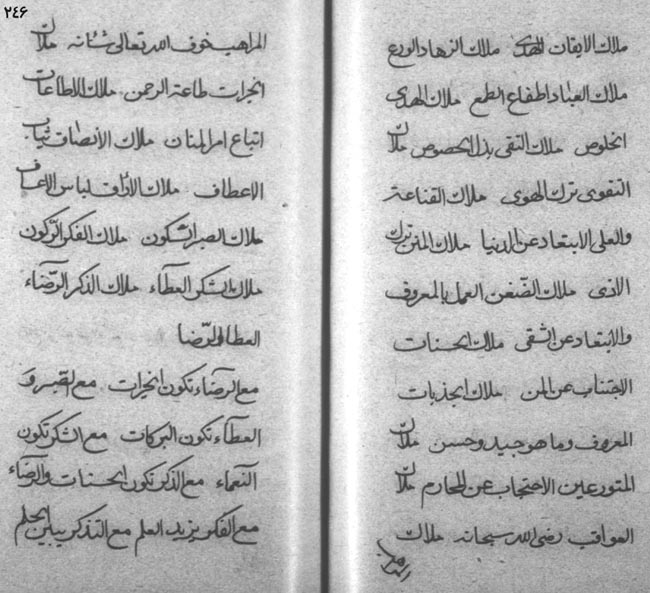 ٢٤۶
ملاك الايقان الهدى ملاك الزهاد الورع
ملاك العباد اطفاع الطمع ملاك الهدى
الخلوص ملاك التقى بذل الخصوص ملاك
التقوى ترك الهوى ملاك القناعة
والعلى الابتعاد عن الدنيا ملاك المنن ترك
الاذى ملاك الضغن العمل بالمعروف
والابتعاد عن الشقى ملاك الحسنات
الاجتناب عن المن ملاك الجذبات
المعروف وما هو جيد وحسن ملاك
المتورعين الاحتجاب عن المحارم ملاك
العواقب رضى الله سبحانه ملاك
المراهب خوف الله تعالى شئانه ملاك
الخيرات طاعة الرحمن ملاك الاطاعات
اتباع امر المنان ملاك الأنصاف ثياب
الاعطاف ملاك لباس الاعفاف
ملاك الصبر الشكون ملاك الفكر الركون
ملاك الشكر العطآء ملاك الذكر الرّضآء
العطا والرّضا
مع الرضآء تكون الخيرات مع الصبر و
العطآء تكون البركات مع الشكر تكون
النعماء مع الذكر تكون الحسنات والرضآء
مع الفكر يزيد العلم مع التذكر يبين الحلم